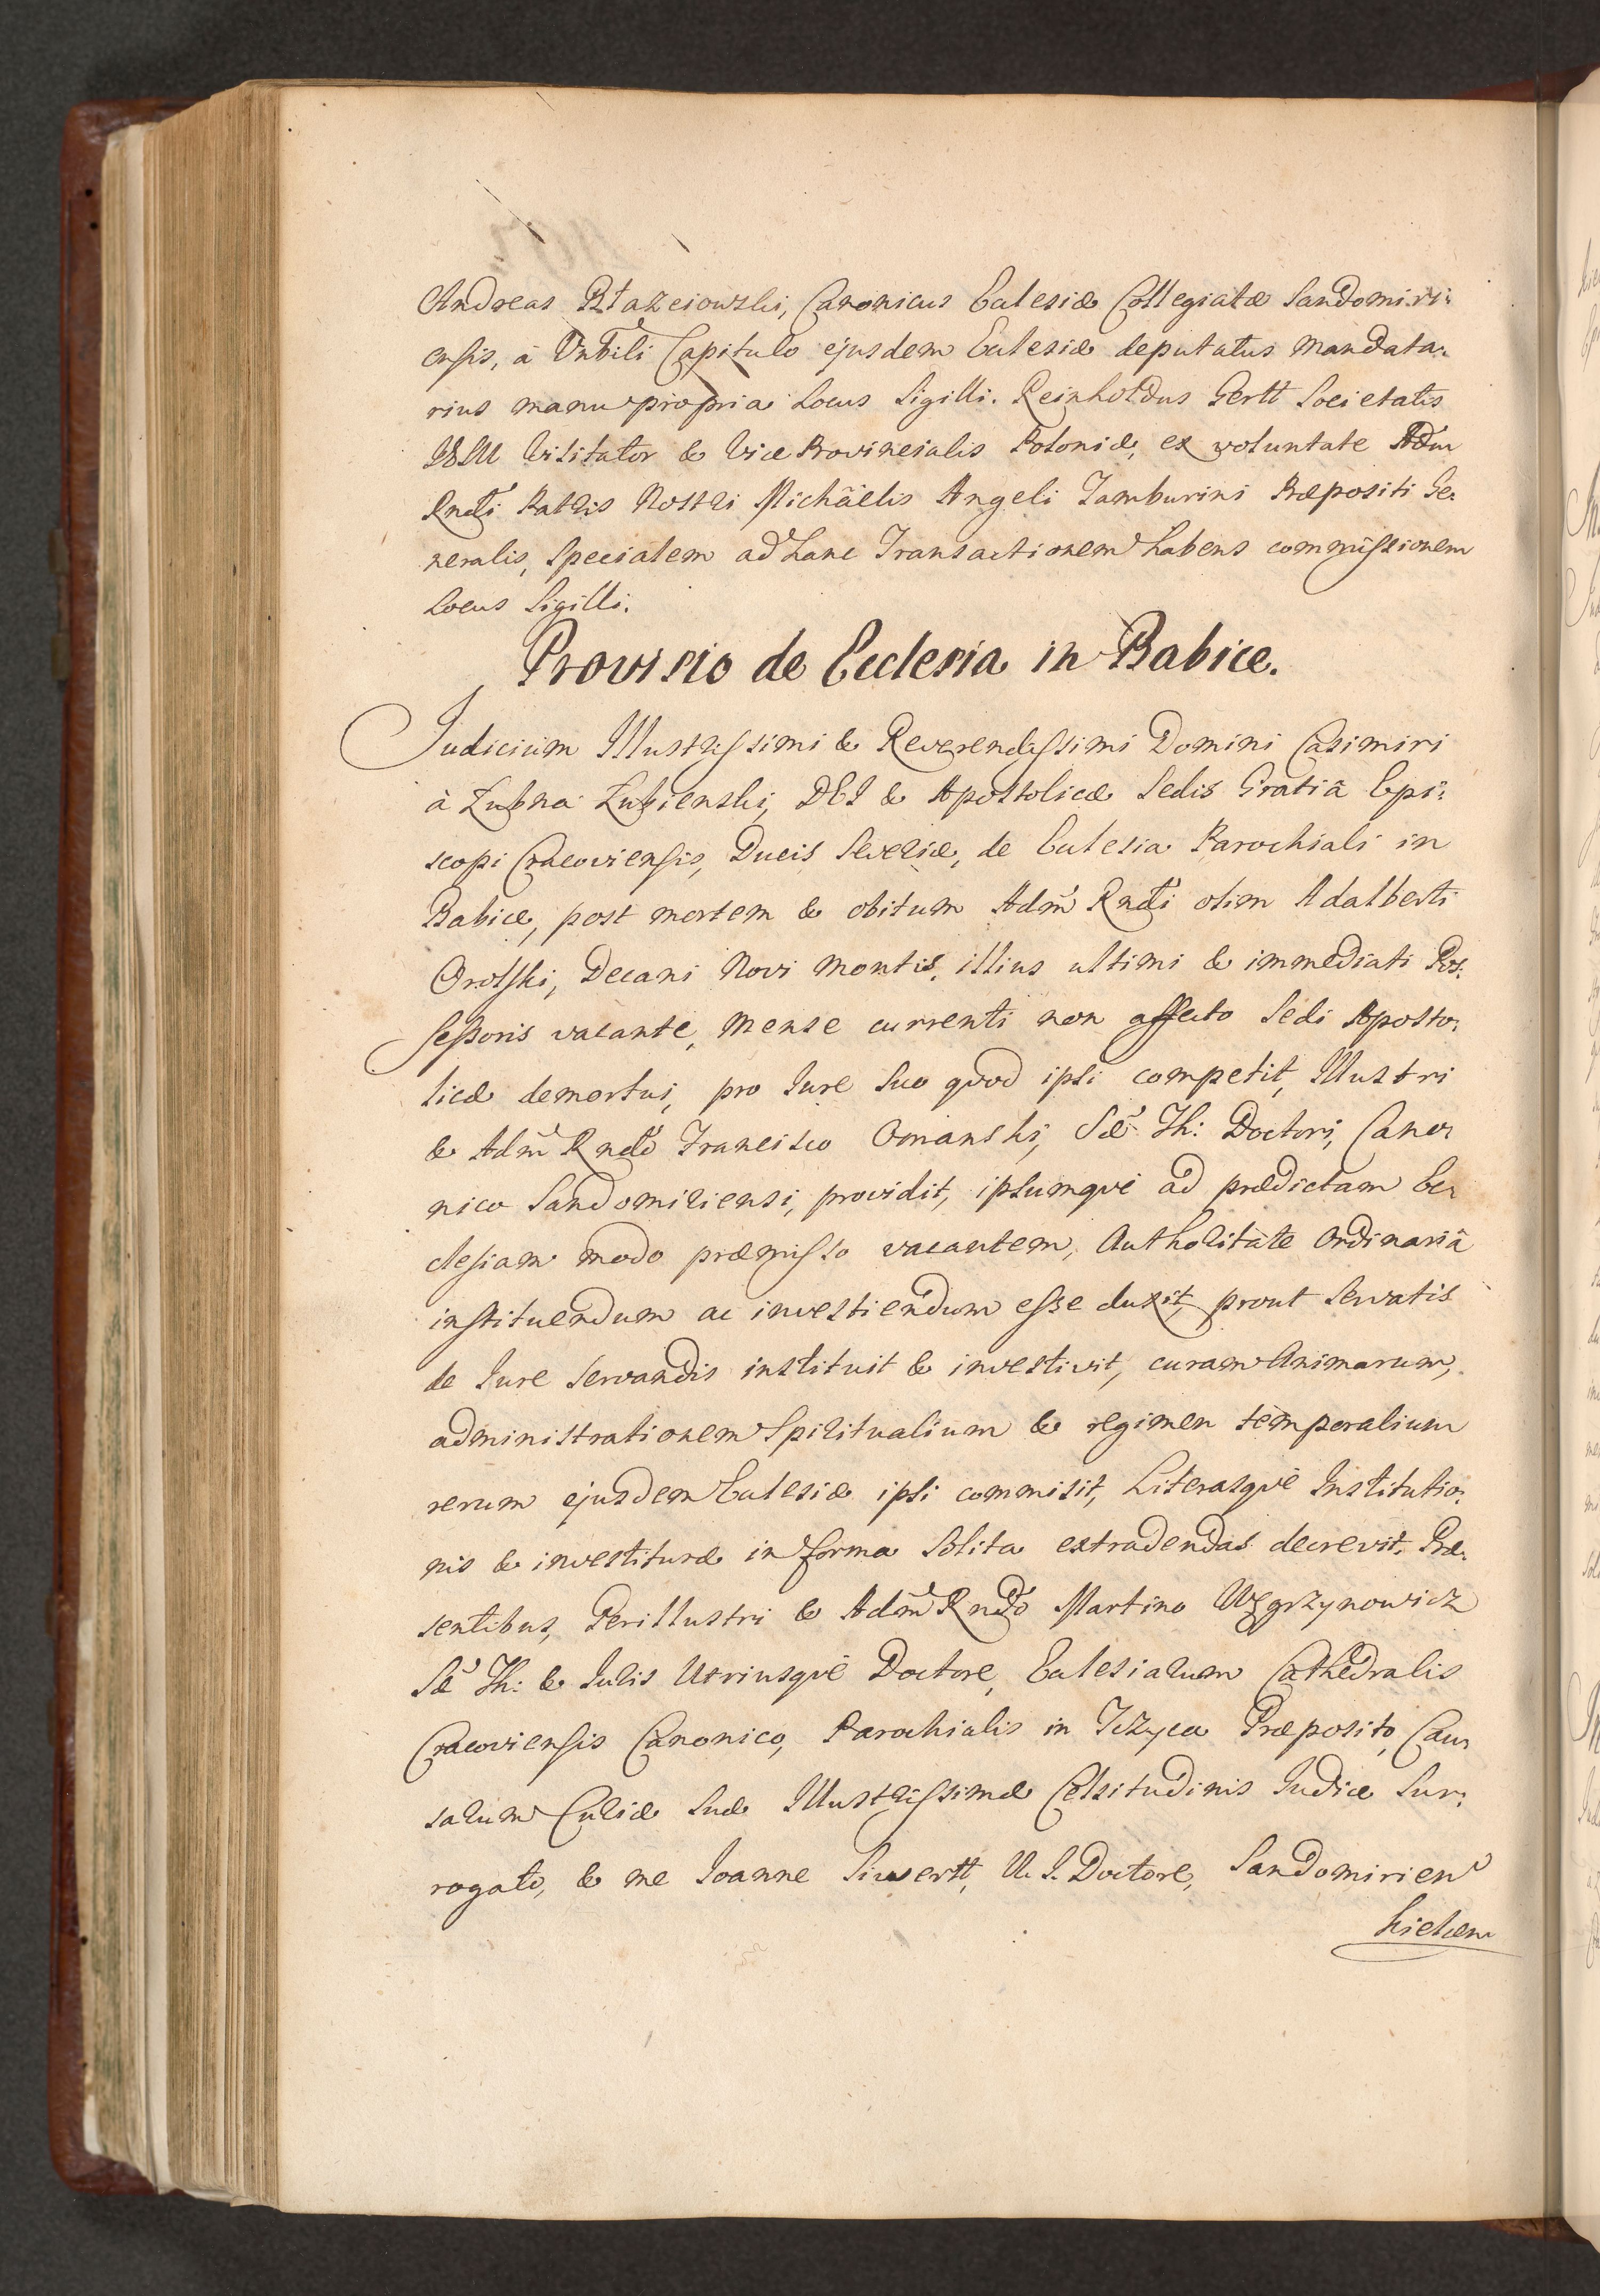 Andreas Błazeiowski, Canonicus Ecclesiæ Collegiatæ Sandomiri-
ensis, à Vnbili Capitulo ejusdem Ecclesiæ deputatus Mandata-
rius manu propria Locus Sigilli. Reinholdus Gertt Societatis
IESU Visitator & Vice Provincialis Poloniæ, ex voluntate Adm
Rndi Patris Nostri Michäelis Angeli Tamburini Præpositi Ge-
neralis, Specialem ad hanc Transactionem habens commissionem
Locus Sigilli.
Provisio de Ecclesia in Babice.
Judicium Illustrissimi & Reverendissimi Domini Casimiri
à Łubna Łubienski, DEI & Apostolicæ Sedis Gratiâ Epi-
scopi Cracoviensis, Ducis Severiæ, de Ecclesia Parochiali in
Babice, post mortem & obitum Adm Rndi olim Adalberti
Orolski, Decani Novi Montis, illius ultimi & immediati Pos-
sessoris vacante, Mense currenti non affecto Sedi Aposto-
licæ demortui, pro Iure Suo qvod ipsi competit, Illustri
& Adm Rndo Francisco Omanski, Sæ Th: Doctori, Cano-
nico Sandomiriensi, providit, ipsumqve ad prædictam Ec-
clesiam modo præmisso vacantem, Authoritate Ordinariâ
instituendum ac investiendum esse duxit, prout Servatis
de Iure Servandis instituit & investivit, curam Animarum,
administrationem Spiritualium & regimen temporalium
rerum ejusdem Ecclesiæ ipsi commisit, Literasqve Institutio-
nis & investituræ in forma Solita extradendas decrevit. Præ-
sentibus, Perillustri & Adm Rndo Martino Węgrzynowicz
Sæ Th: & Iuris Utriusqve Doctore, Ecclesiarum Cathedralis
Cracoviensis Canonico, Parochialis in Tczyca Præposito, Cau-
sarum Curiæ Suæ Illustrissimæ Celsitudinis Iudice Sur-
rogato, & me Ioanne Siwertt, U. I. Doctore, Sandomirien
Kielcen